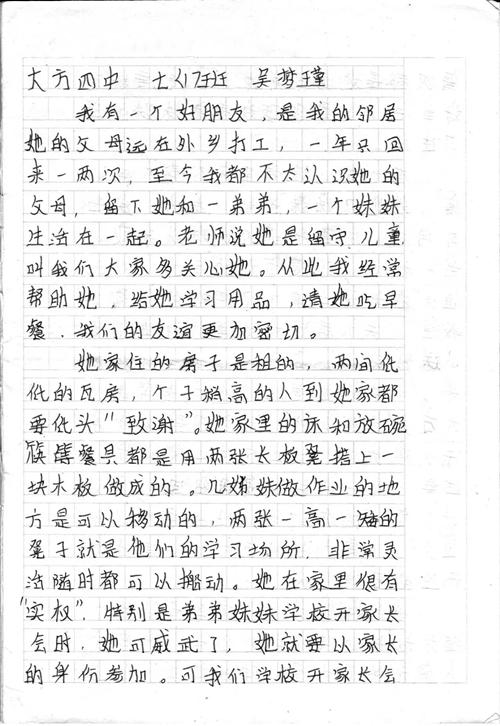 大方四中 七(17)班 吴梦瑾
我有一个好朋友，是我的邻居
她的父母远在外乡打工，一年只回
来一两次，至今我都不太认识她的
父母，留下她和一弟弟，一个妹妹
生活在一起。老师说她是留守儿童
叫我们大家多关心她。从此我经常
帮助她，给她学习用品，请她吃早
餐．我们的友谊更加密切。
她家住的房子是租的，两间低
低的瓦房，个子稍高的人到她家都
要低头“致谢”。她家里的床和放碗
筷等餐具都是用两张长板凳搭上一
块木板做成的。几姊妹做作业的地
方是可以移动的，两张一高一矮的
凳子就是他们的学习场所．非常灵
活随时都可以搬动。她在家里很有
“实权”．特别是弟弟妹妹学校开家长
会时，她可威武了，她就要以家长
的身份参加。可我们学校开家长会